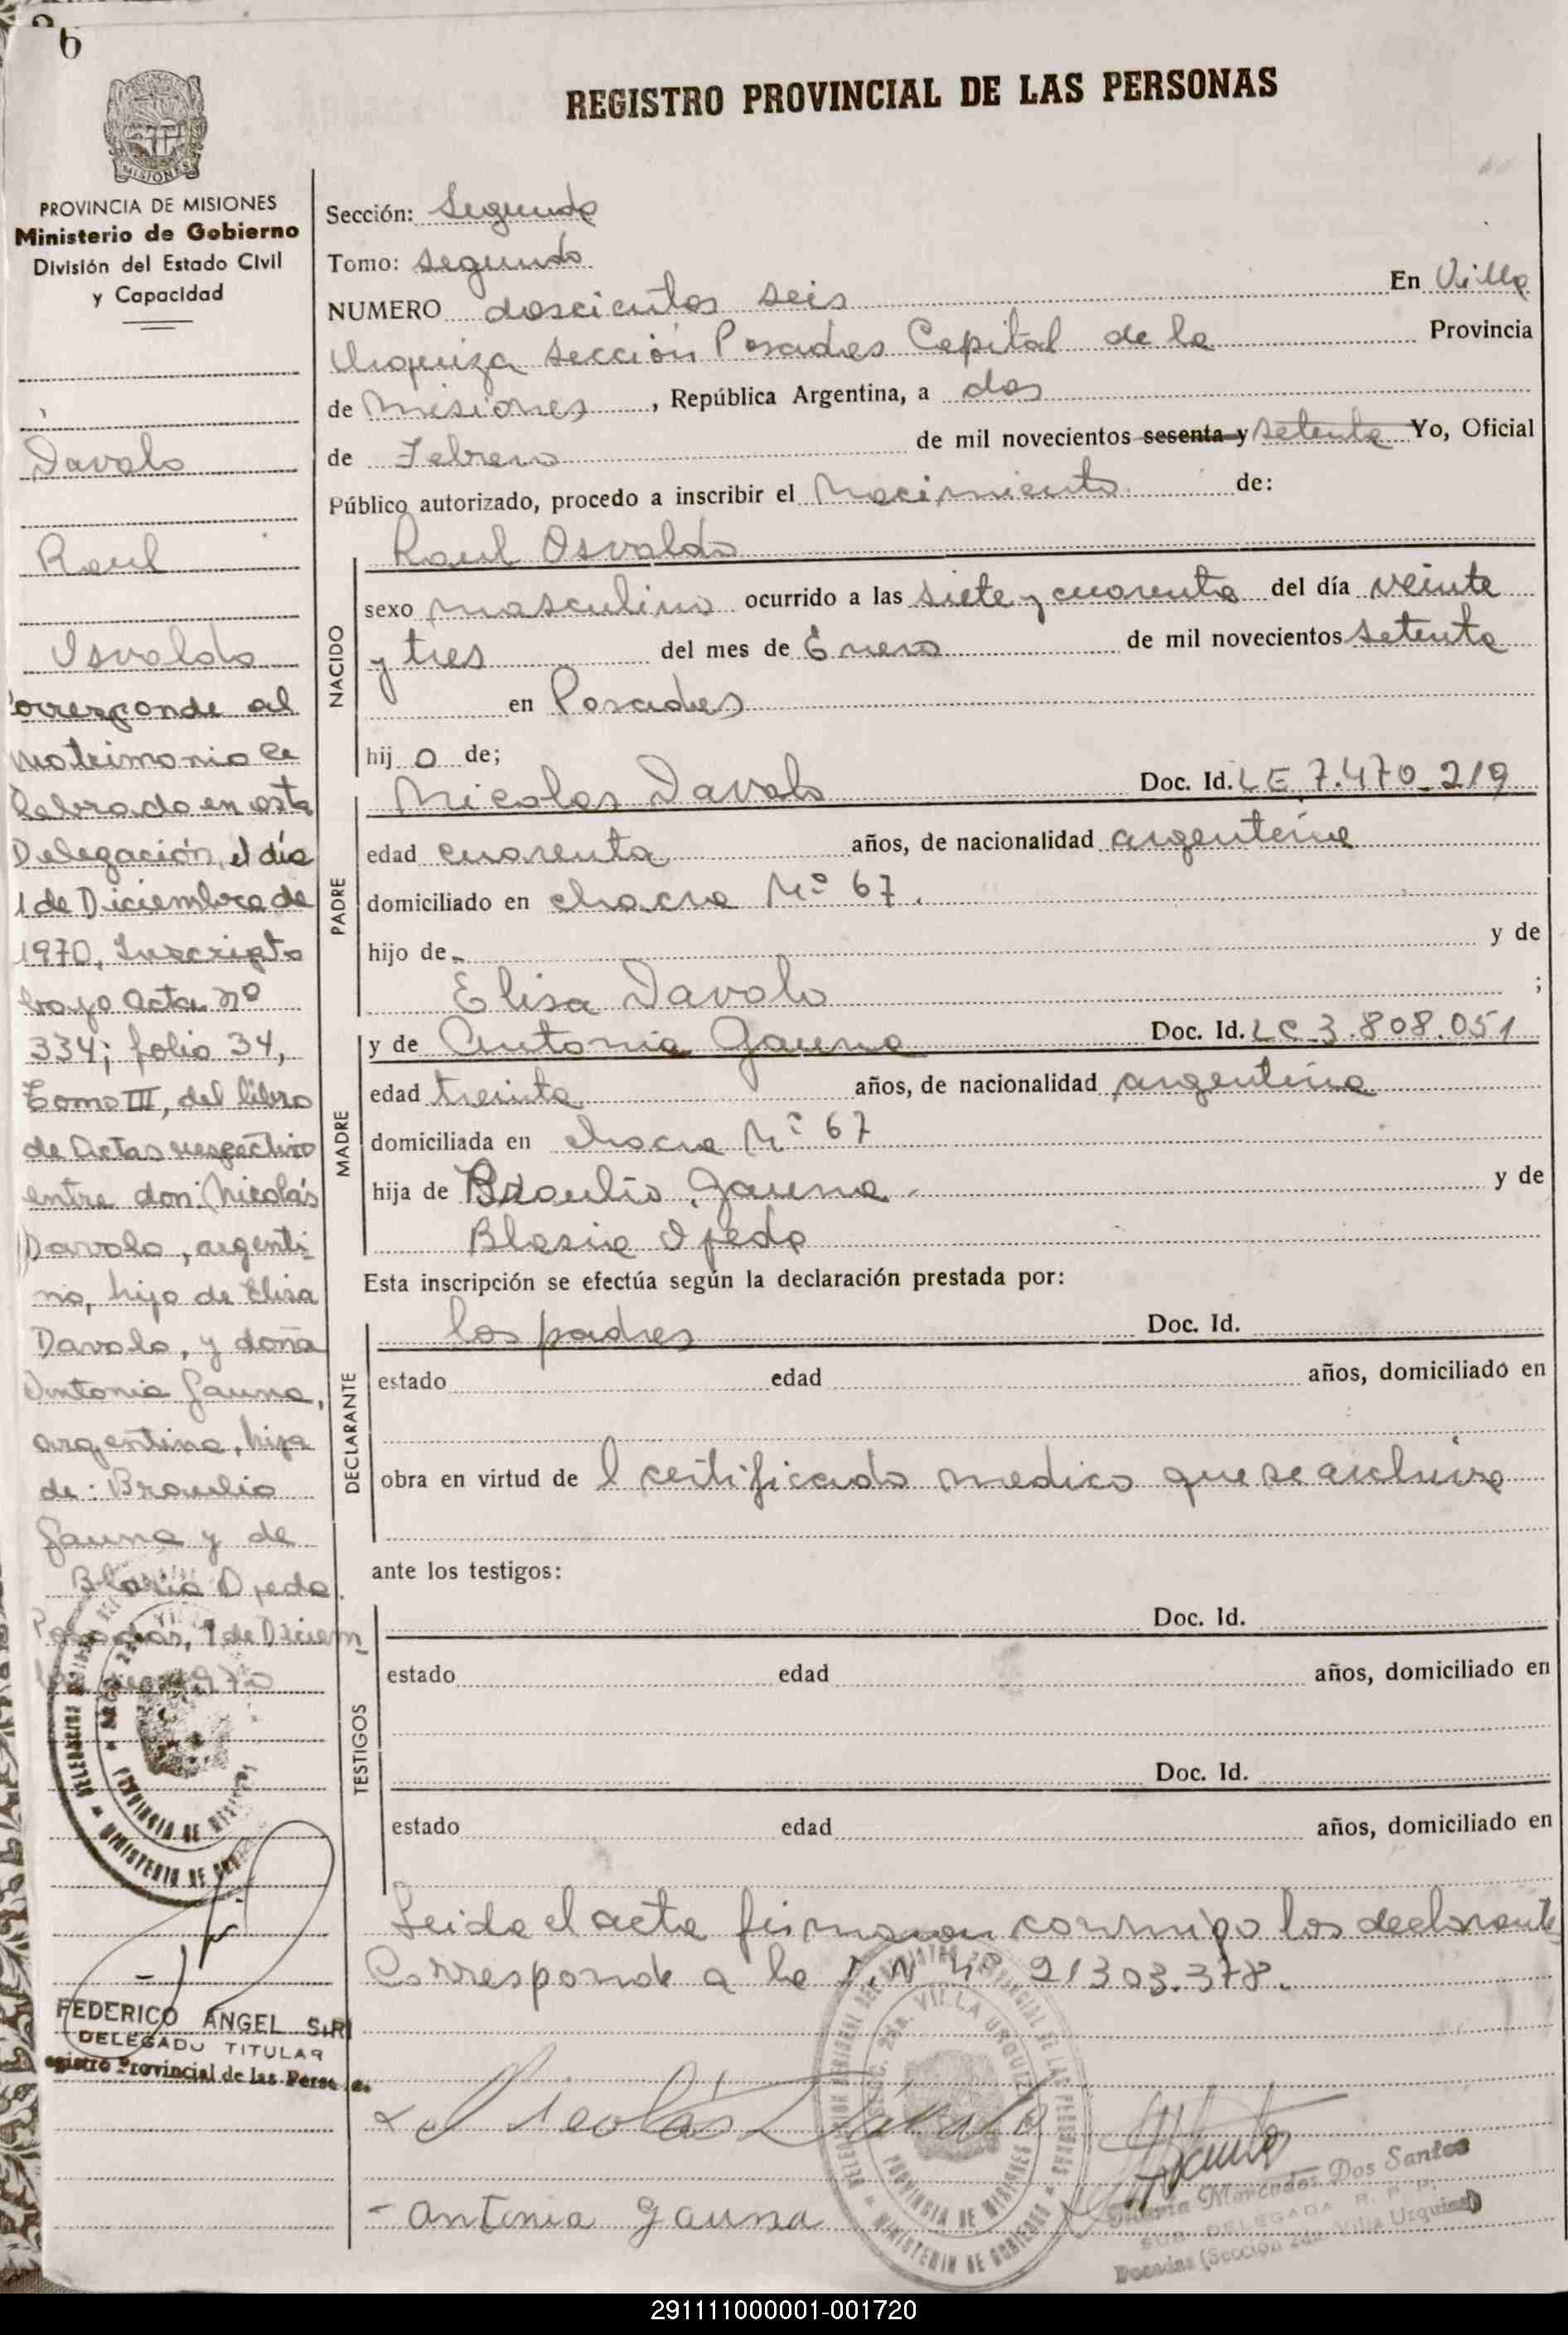 6
REGISTRO PROVINCIAL DE LAS PERSONAS
MISIONES
PROVINCIA DE MISIONES
Ministerio de Gobierno
División del Estado Civil
y Capacidad
Davalo
Raul
Osvaldo
orresponde al
matrimonio ce
lebrado en esta
Delegación, el día
1 de Diciembre de
1970, Inscripto
bajo Acta nº
334; folio 34,
Tomo III, del libro
de Actas respectivo
entre don: Nicolás
Davalo, argenti-
no, hijo de Elisa
Davalo, y doña
Antonia Gauna,
argentina, hija
de: Braulio
Gauna y de
Blasia Ojeda.
Posadas, 1 de Diciem
FEDERICO ANGEL SIRI
DELEGADO TITULAR
egistro Provincial de las Perso
Sección: Segunda
Tomo: Segundo
NUMERO doscientos seis En Villa
Urquiza Sección Posadas Capital de la Provincia
de Misiones, República Argentina, a dos
de Febrero de mil novecientos sesenta y setenta Yo, Oficial
Público autorizado, procedo a inscribir el Nacimiento de:
NACIDO
Raul Osvaldo
sexo masculino ocurrido a las siete y cuarenta del día veinte
y tres del mes de Enero de mil novecientos setenta
en Posadas
hij o de;
PADRE
Nicolas Davalo Doc. Id. LE 7.470.219
edad cuarenta años, de nacionalidad argentina
domiciliado en chacra Nº 67.
hijo de - y de
Elisa Davalo ;
MADRE
y de Antonia Gauna Doc. Id. LC 3.808.051
edad treinta años, de nacionalidad argentina
domiciliada en chacra Nº 67
hija de Braulio Gauna y de
Blasia Ojeda
Esta inscripción se efectúa según la declaración prestada por:
DECLARANTE
los padres Doc. Id.
estado edad años, domiciliado en
obra en virtud de l certificado medico que se archiva
ante los testigos:
TESTIGOS
Doc. Id.
estado edad años, domiciliado en
Doc. Id.
estado edad años, domiciliado en
Leida el acta firman conmigo los declarante
Corresponde a la Nº 21303.378.
Nicolás Dávalo
- Antonia Gauna
SECC. 2da. VILLA URQUIZA
PROVINCIA DE MISIONES
MINISTERIO DE GOBIERNO
Maria Mercedes Dos Santos
SUB DELEGADA R. P. P.
Posadas (Sección 2da. Villa Urquiza)
291111000001-001720